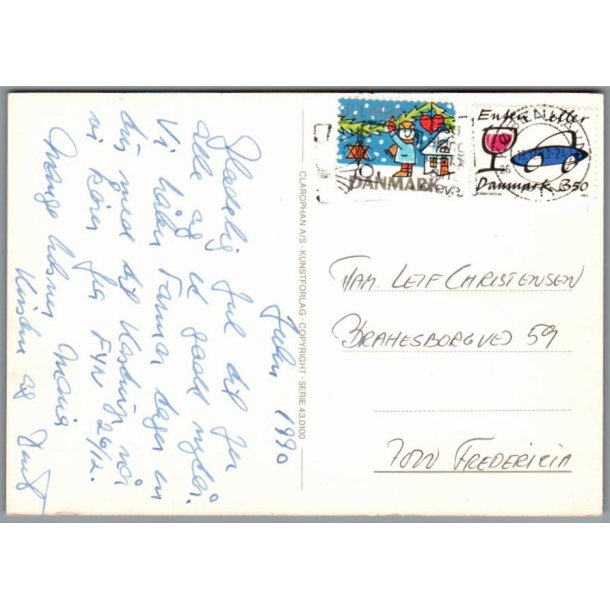 Julen 1990
Glædelig Jul til Jer
alle og et godt nytår.
Vi håber Farmor tager en
tur med til Kastrup når
vi kører fra FYN 26/12.
Mange hilsner Maria
Kirsten og
CLAROPHAN A/S · KUNSTFORLAG · COPYRIGHT · SERIE 43.0100
DANMARK
Enten Eller
Danmark 350
FAM. LEIF CHRISTENSEN
BRAHESBORGVEJ 59
7000 FREDERICIA